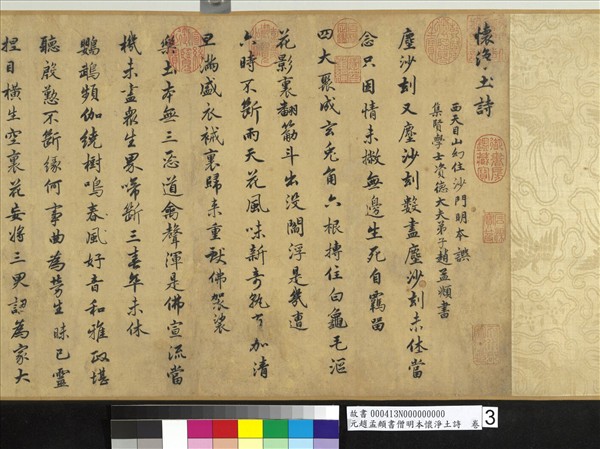 懷淨土詩
西天目山幻住沙門明本譔
集賢學士資德大夫弟子趙孟頫書
塵沙刼又塵沙刼數盡塵沙刼未休當
念只因情未撇無邊生死自羈留
四大聚成玄兔角六根摶住白龜毛漚
花影裏翻筋斗出没閻浮是幾遭
六時不斷雨天花風味新奇孰可加清
旦滿盛衣裓裏歸來重獻佛袈裟
樂土本無三恶道禽聲渾是佛宣流當
機未盡衆生界啼斷三春卒未休
鸚鵡頻伽繞樹鳴春風好音和雅政堪
聽殷懃不斷緣何事曲為勞生昧已靈
捏目橫生空裏花妄將三界認為家大
故書 000413N000000000
元趙孟頫書僧明本懷淨土詩 卷
3